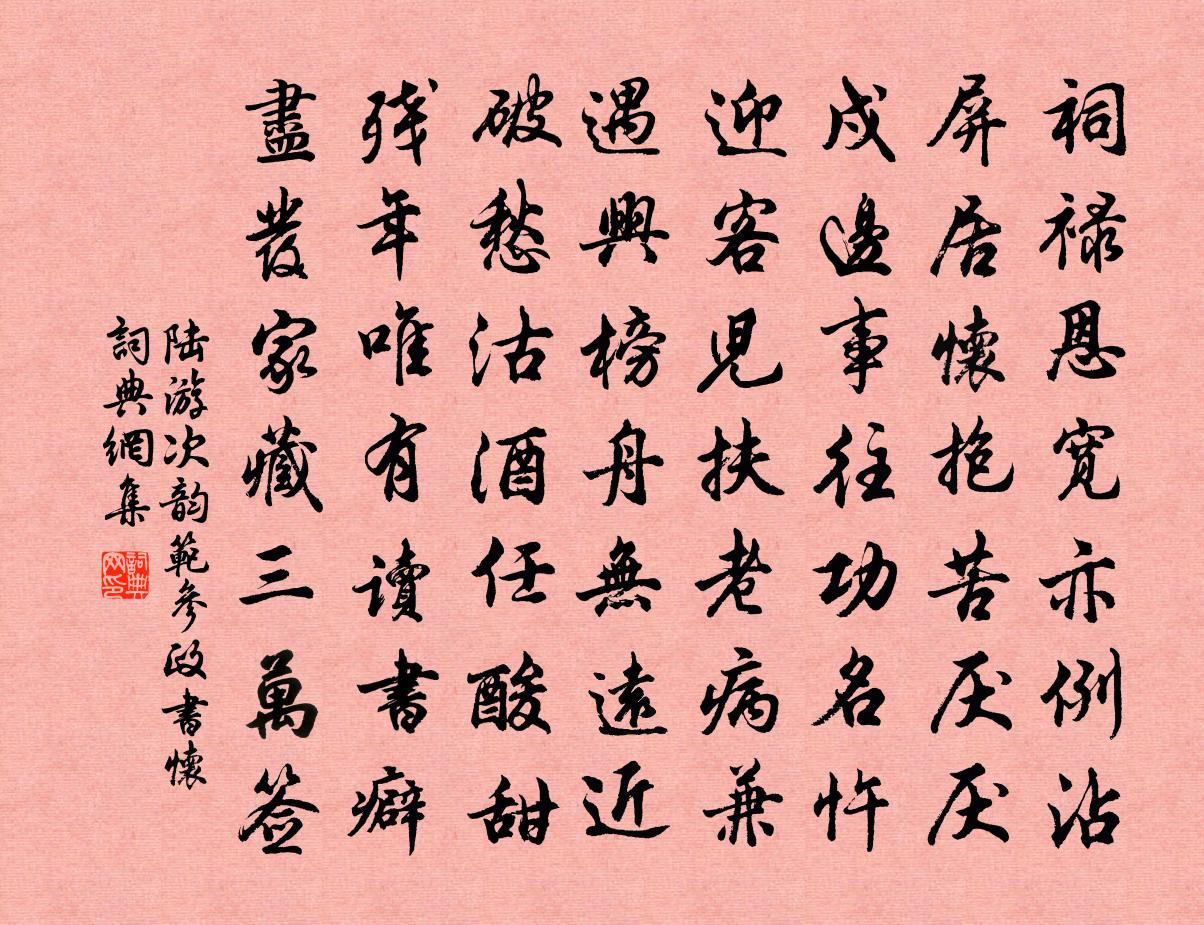 祠禄恩寬亦例沾
屏居懷抱苦厌厌
戍邊事往功名忤
迎客児扶老病兼
遇興榜舟無遠近
破愁沽酒任酸甜
残年唯有讀書癖
盡發家藏三萬签
陆游次韵範參政書懷
詞典網集
詞典网印